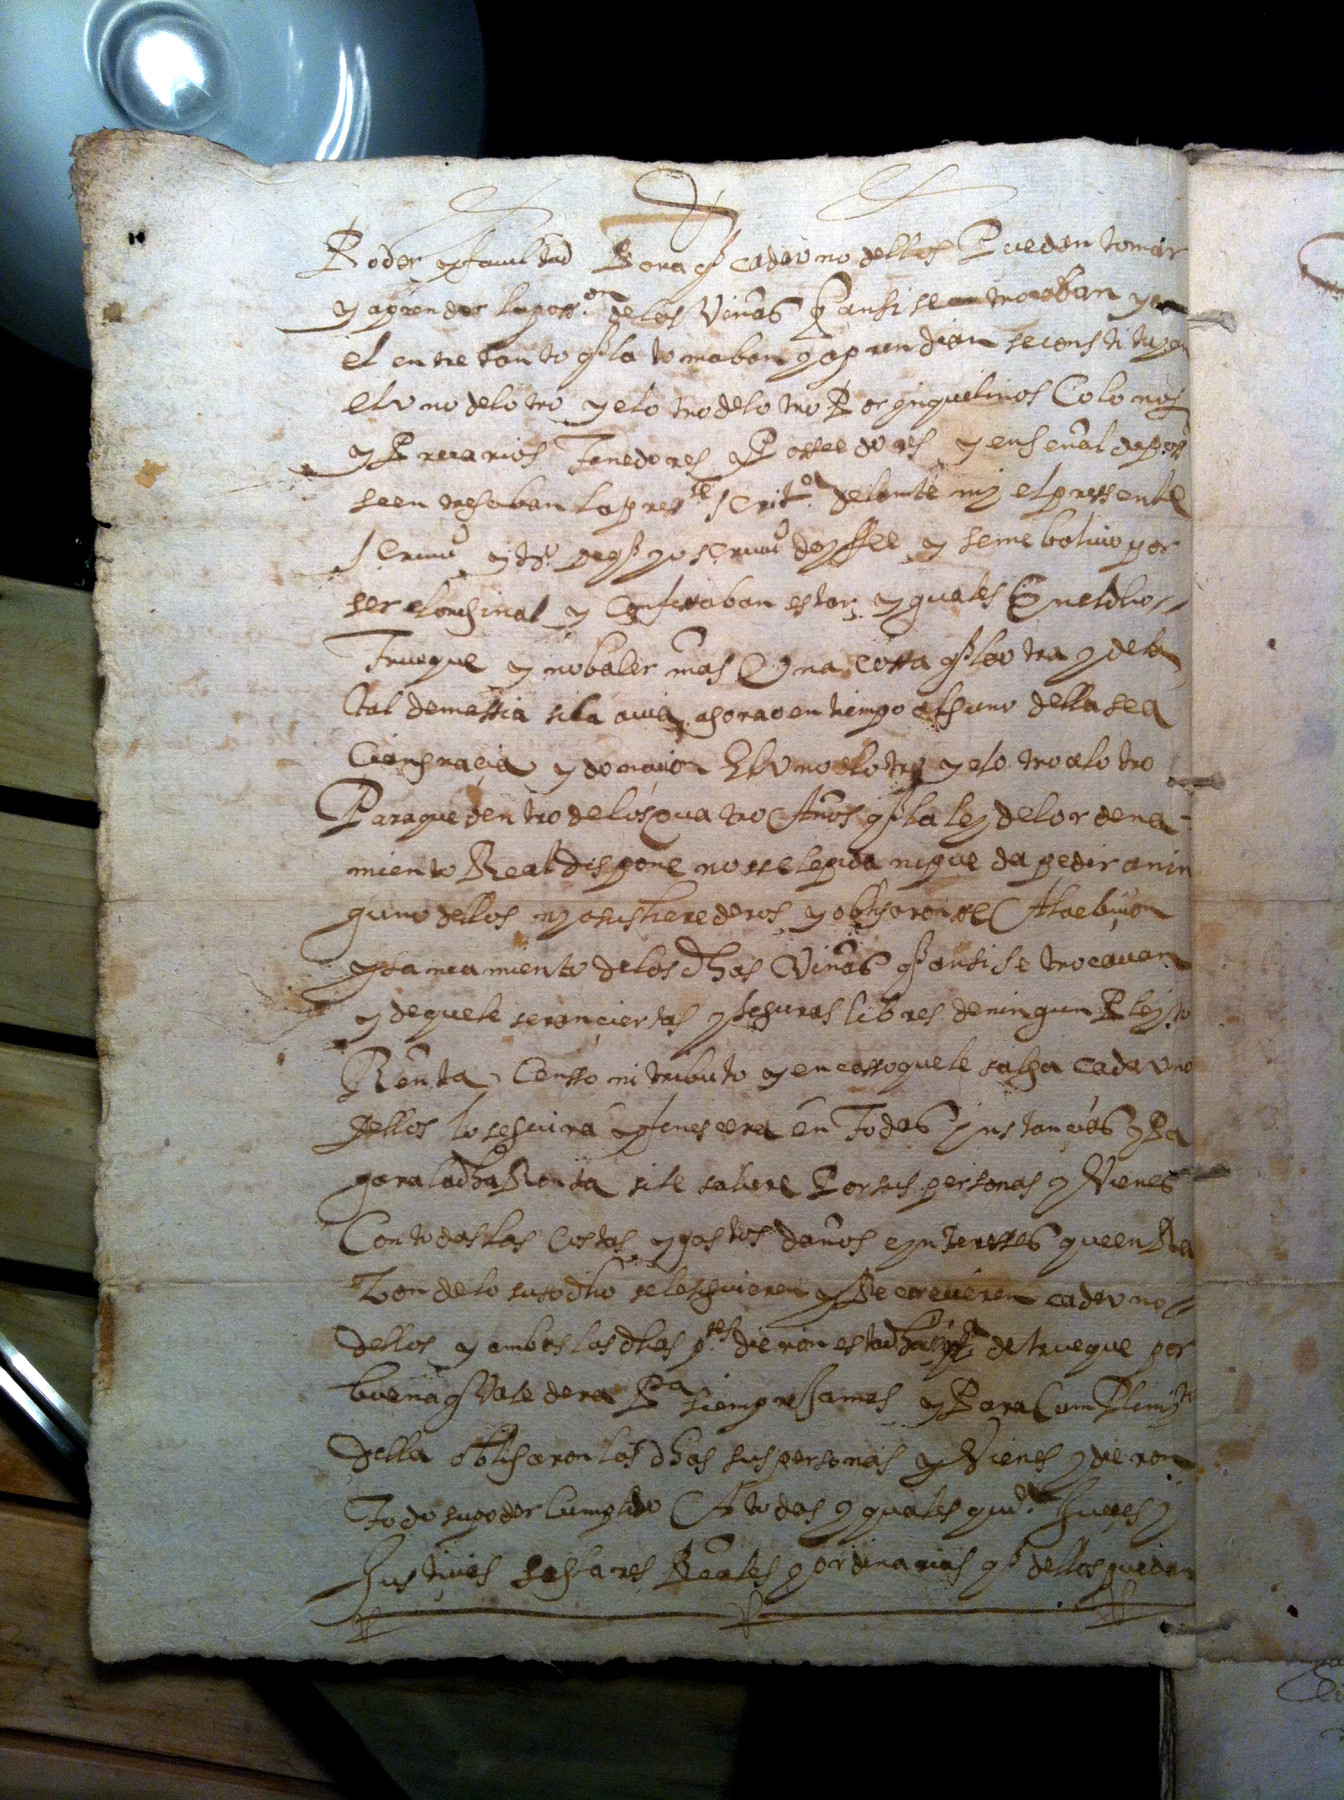 Poder y facultad Para q̃ cada uno dellos Puedan tomar
y aprender la poss.on de las Viñas q̃ ansi se trocaban y en
el entre tanto q̃ la tomaban y aprendian se constituyen
el uno del otro y el otro del otro Por ynquelinos Colonos
y Precarios Tenedores y Posseedores y en señal de poss.on
se entregaban la pres.te scrit.a delante mi el pressente
scriuo y ts.o de q̃ yo scriuo doy ffee y se me bolvio por
ser el original y Confesaban estar yguales En el dho
Trueque y no baler mas Una cossa q̃ la otra y de la
tal demassia si la avia agora o en tiempo alguno della sea
cian gracia y donacion El uno al otro y el otro al otro
Para que dentro de los quatro Años q̃ la ley del ordena
miento Real dispone no sse le pida ni pueda pedir a nin
guno dellos ny a sus herederos y obligaronsse A la ebicion
y saneamiento de las dhas Viñas q̃ ansi se trocavan
y de que le seran ciertas y seguras libres de ningun Pleyto
Renta Censso ni tributo y en casso que le salga cada uno
dellos lo seguira y fenescera en Todas ynstancias y Pa
gara la dha Renta si le saliere Por sus personas y Vienes
Con todas las Costas y gastos daños e yntereses que en Ra
zon de lo susodho se le siguieren y Recrecieren cada uno
dellos y ambas las dhas p.tes dieron esta dha scrip.a de trueque por
buena y Valedera P.a siempre Jamas y Para Cumplimy.to
della obligaron las dhas sus personas y Vienes y dieron
Todo su poder Cumplido A todas y quales quier Jueces y
Justicias seglares Reales y ordinarias q̃ dellos puedan